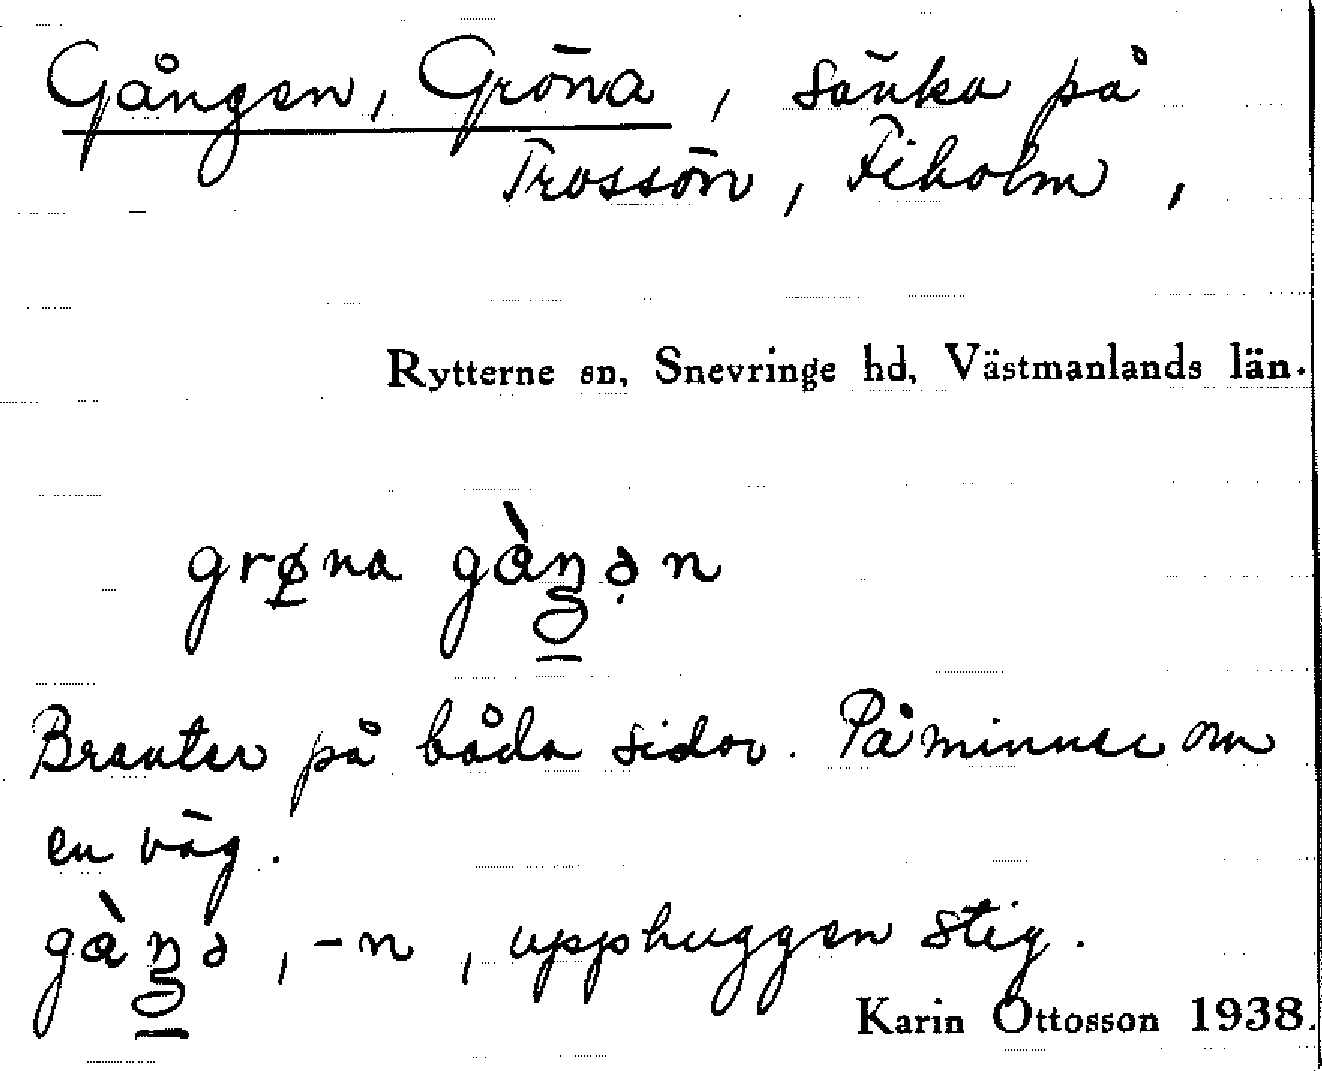 Gången, Gröna, sänka på
Trossön, Fiholm,
Rytterne sn, Snevringe hd, Västmanlands län.
grøna gàŋən
Branter på båda sidor. Påminner om
en väg.
gàŋə, -n, upphuggen stig.
Karin Ottosson 1938.